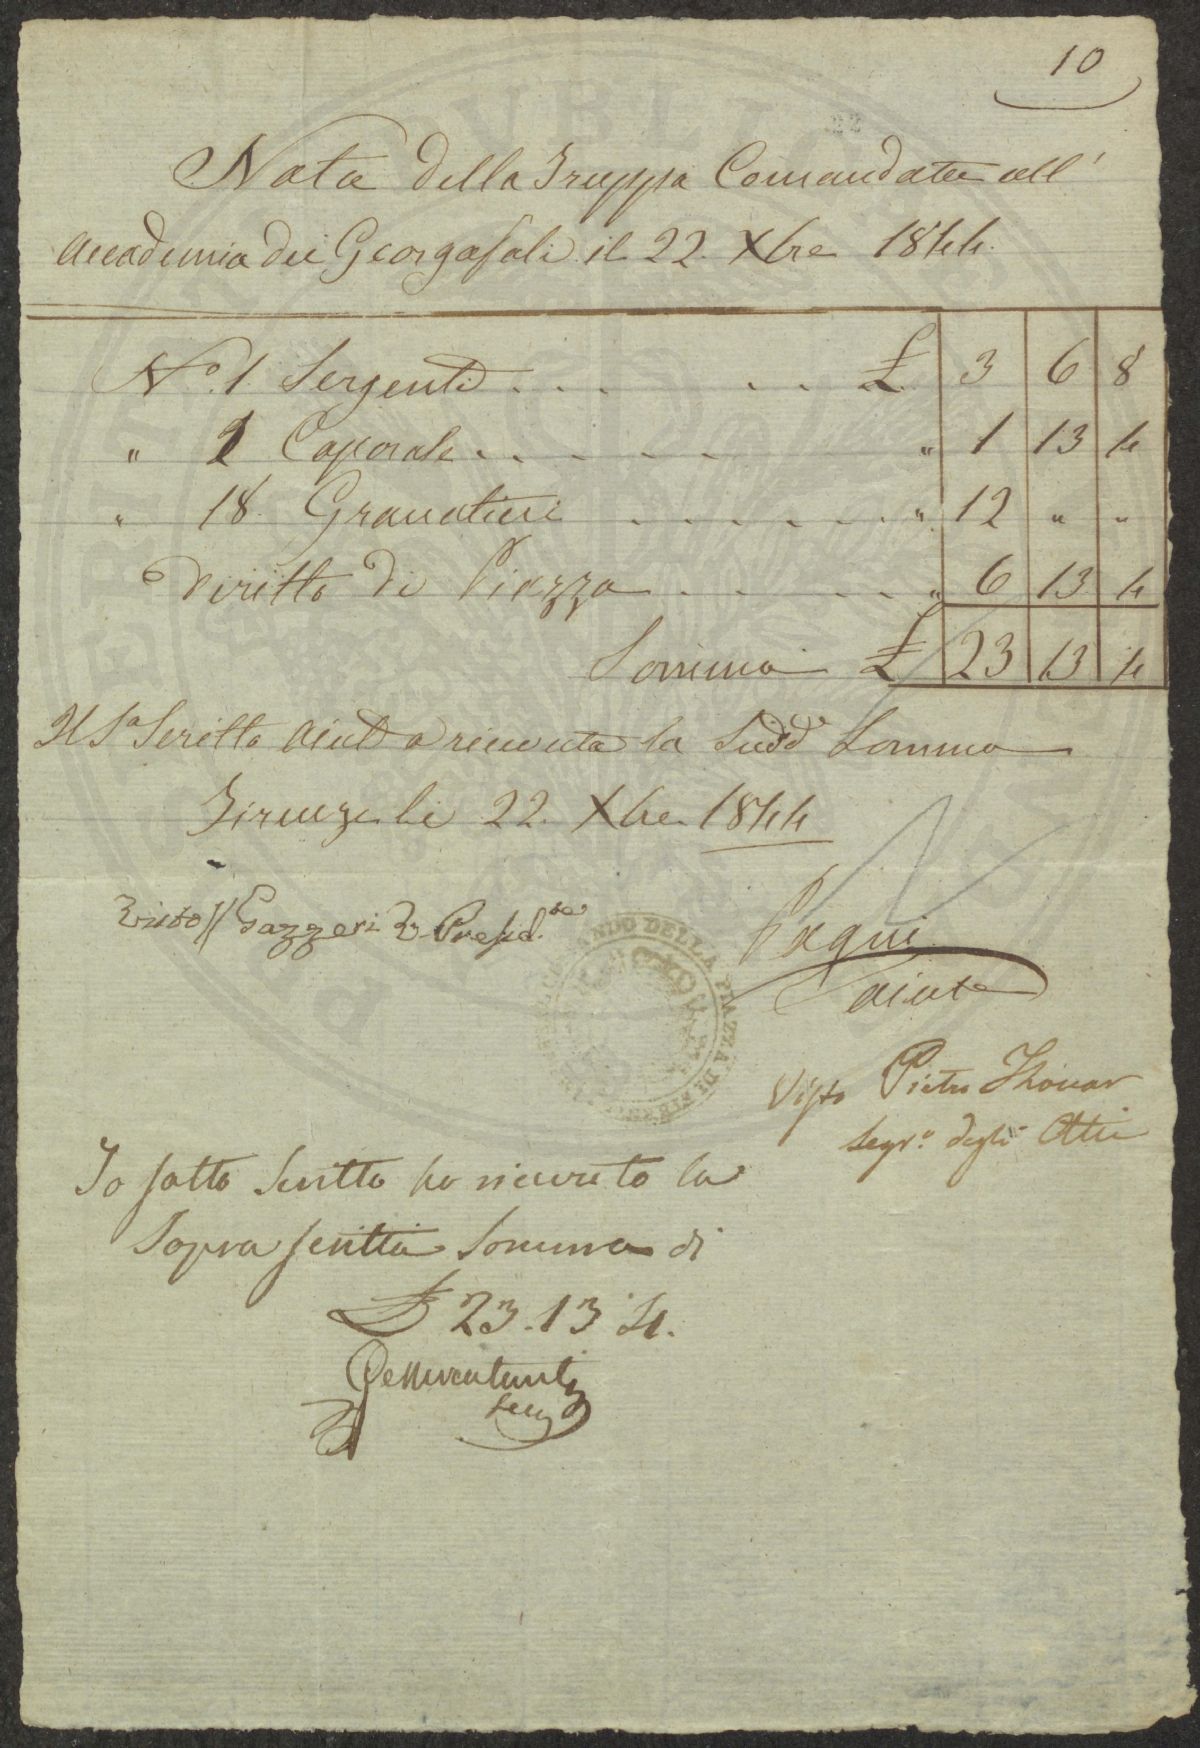 10
Nota della Truppa Comandata all'
Accademia dei Georgofali il 22. Xbre 1844.
N.º 1 Sergente . . . . . £ 3 6 8
" 1 Caporale . . . . . " 1 13 4
" 18 Granatieri . . . . . . " 12 " "
Diritto di Piazza . . . . . " 6 13 4
Somma £ 23 13 4
Il Sº Scritto Aiut ricevuta la Sudd.ª Somma
Firenze li 22. Xbre 1844
Visto // Gazzeri V. Presid.te
COMANDO DELLA PIAZZA DI FIRENZE
Pagni
Aiute
Visto Pietro Thouar
Segr.º degli Atti
Io sotto scritto ho ricevuto la
Sopra scritta Somma di
£ 23. 13 4.